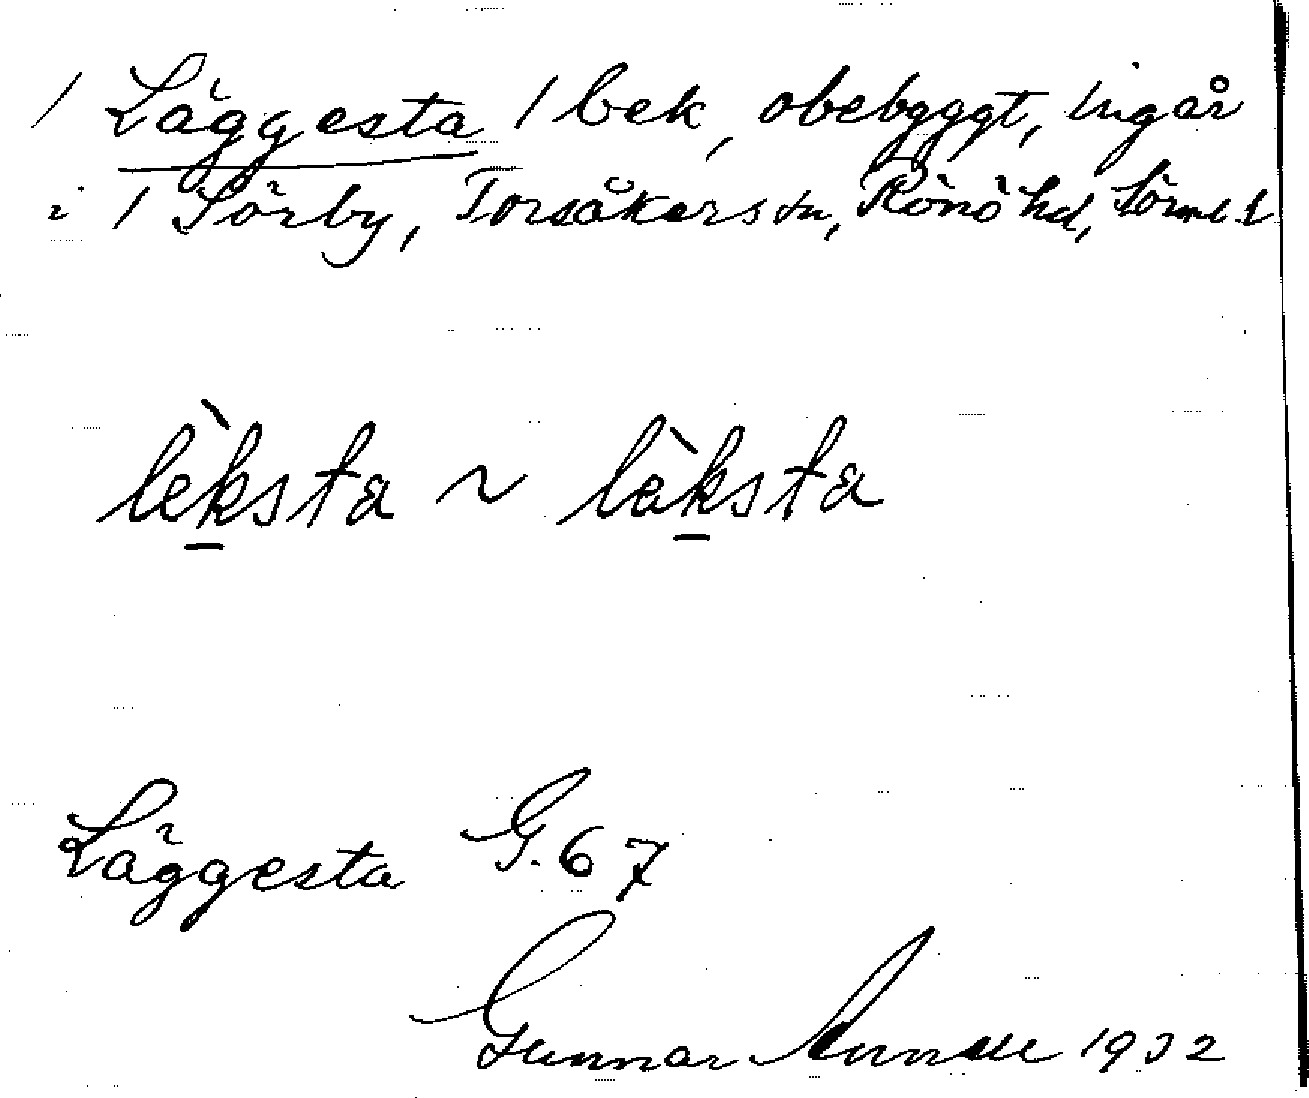 1 Läggesta 1 bek, obebyggt, ingår
i 1 Sörby, Torsåkers sn, Rönö hd, Sörml.
lèksta ~ läksta
Läggesta G. 67
Gunnar 1932